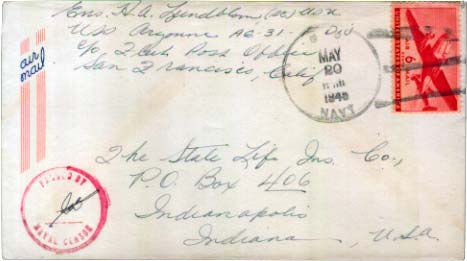 Ens. H.A. Lindblom (SC) USN
USS Argonne AG-31 - Div
c/o Fleet Post Office
San Francisco, Calif
air mail
MAY
20
1945
NAVY
UNITED STATES OF AMERICA
6¢
AIR MAIL
The State Life Ins. Co.,
P.O. Box 406
Indianapolis
Indiana, U.S.A.
PASSED BY
NAVAL CENSOR